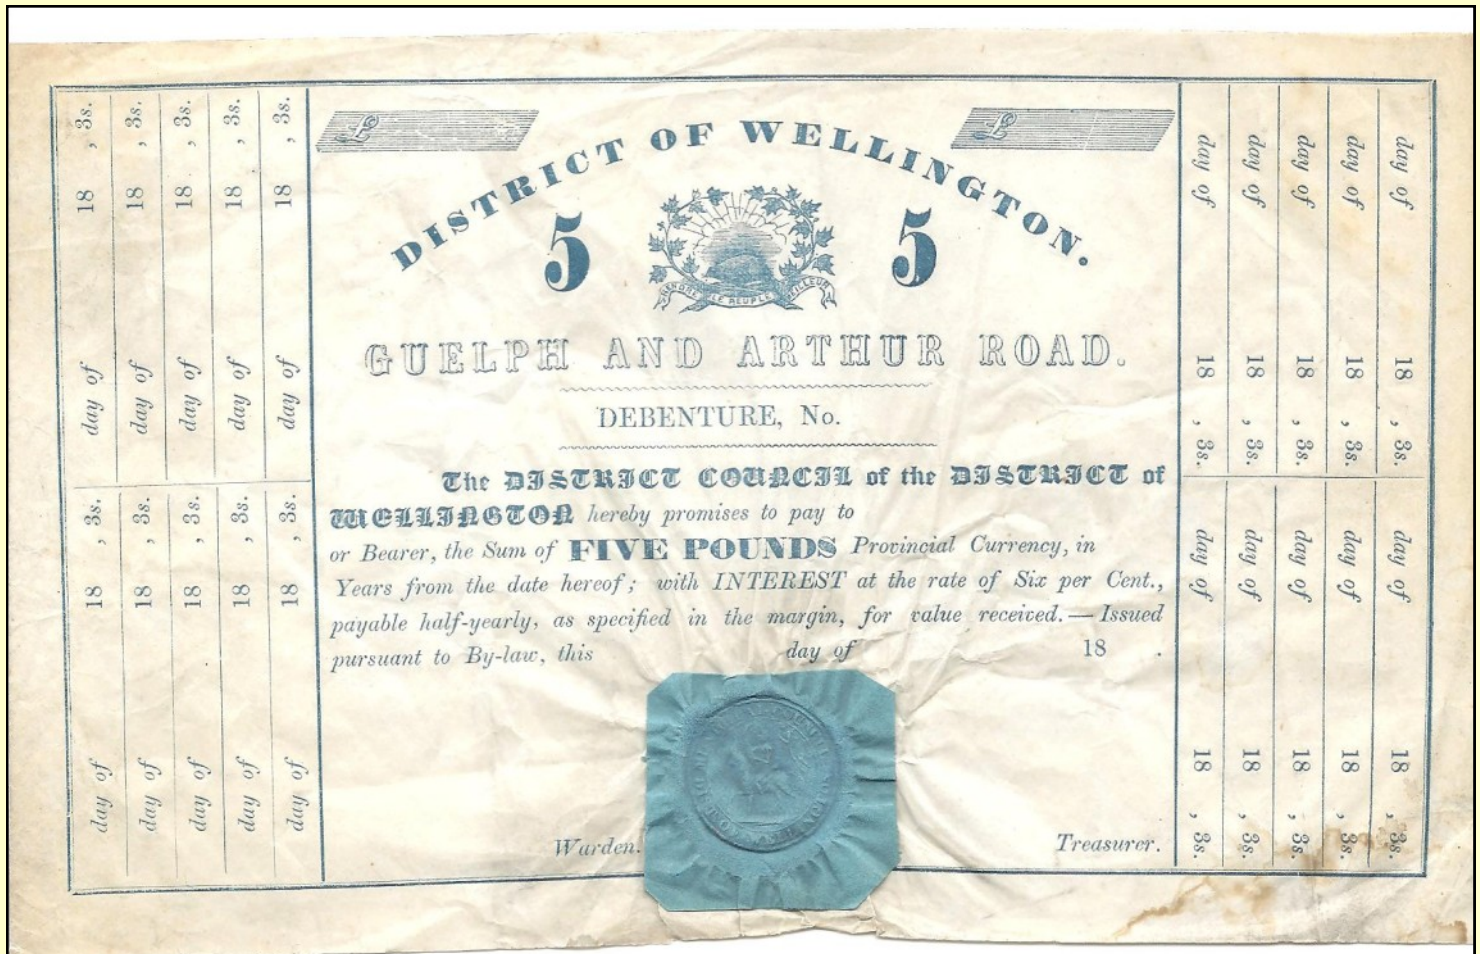 day of 18 , 3s.
day of 18 , 3s.
day of 18 , 3s.
day of 18 , 3s.
day of 18 , 3s.
day of 18 , 3s.
day of 18 , 3s.
day of 18 , 3s.
day of 18 , 3s.
day of 18 , 3s.
£ £
DISTRICT OF WELLINGTON.
5 5
RENDRE LE PEUPLE MEILLEUR
GUELPH AND ARTHUR ROAD.
DEBENTURE, No.
The DISTRICT COUNCIL of the DISTRICT of
WELLINGTON hereby promises to pay to
or Bearer, the Sum of FIVE POUNDS Provincial Currency, in
Years from the date hereof; with INTEREST at the rate of Six per Cent.,
payable half-yearly, as specified in the margin, for value received.—Issued
pursuant to By-law, this day of 18 .
Warden. Treasurer.
day of 18 , 3s.
day of 18 , 3s.
day of 18 , 3s.
day of 18 , 3s.
day of 18 , 3s.
day of 18 , 3s.
day of 18 , 3s.
day of 18 , 3s.
day of 18 , 3s.
day of 18 , 3s.